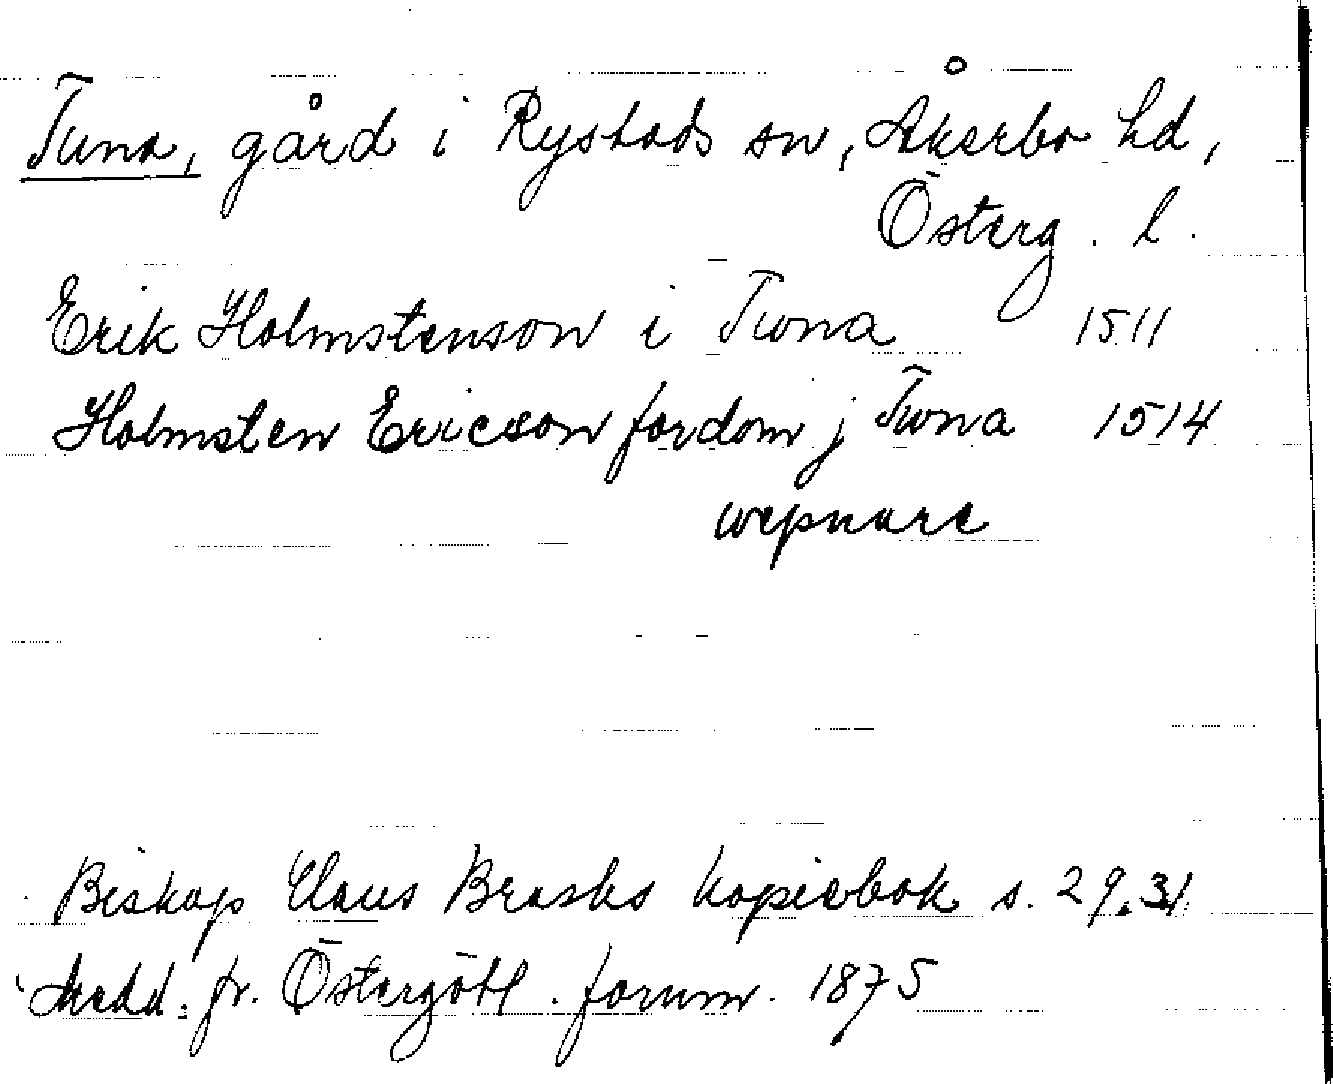 Tuna, gård i Rystads sn, Åkerbo hd,
Österg. l.
Erik Holmstenson i Tuna 1511
Holmsten Ericson fordom j Tuna 1514
wepnare
Biskop Claus Brasks kopiebok s. 29, 31
Medd. fr. Östergötl. fornm. 1875